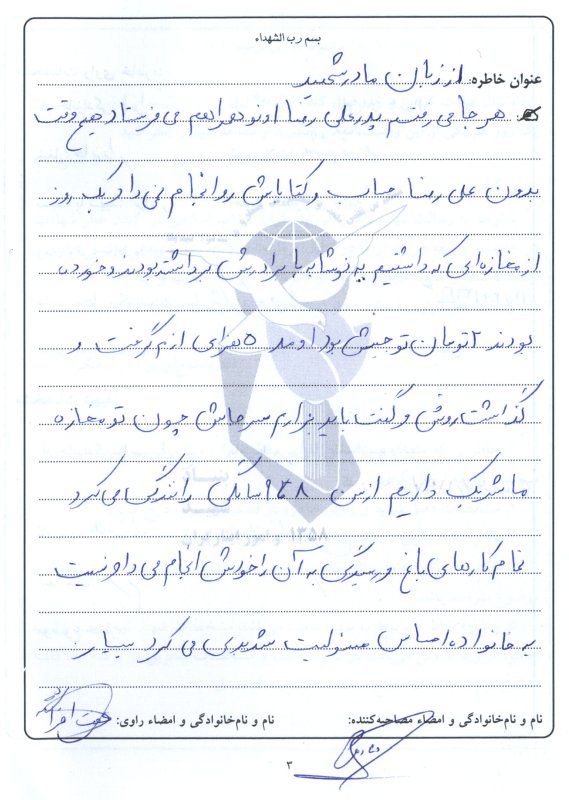 بسم رب الشهداء
عنوان خاطره: از زبان مادر شهید
هر جا می رفتم پدر علی رضا اونو همراهم می فرستاد هیچ وقت
بدون علی رضا حساب و کتابایش رو انجام نمی داد یک روز
از مغازه ای که داشتیم یه نوشابه با برادرش برداشته بودند و خورده
بودند ۲ تومان تو جیبش بود اومد ۵ هزاری ازم گرفت و
گذاشت روش و گفت باید بزارم سرجاش چون تو مغازه
ما شریک داریم از سن ۸ تا ۹ سالگی رانندگی می کرد
تمام کارهای باغ و رسیدگی به آن را خودش انجام می داد و نسبت
به خانواده احساس مسئولیت شدیدی می کرد بسیار
نام و نام‌خانوادگی و امضاء مصاحبه‌کننده: نام و نام‌خانوادگی و امضاء راوی:
۱۳۵۸
۳